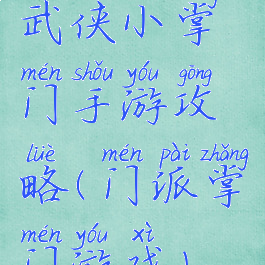 武侠小掌
mén shǒu yóu gōng
门手游攻
lüè mén pài zhǎng
略(门派掌
mén yóu xì
门游戏)